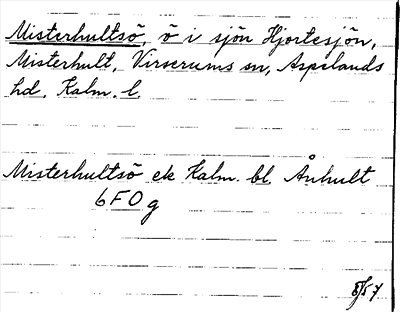 Misterhultsö, ö i sjön Hjortesjön,
Misterhult, Virserums sn, Aspelands
hd, Kalm. l.
Misterhultsö ek Kalm. bl. Ånhult
6F0g